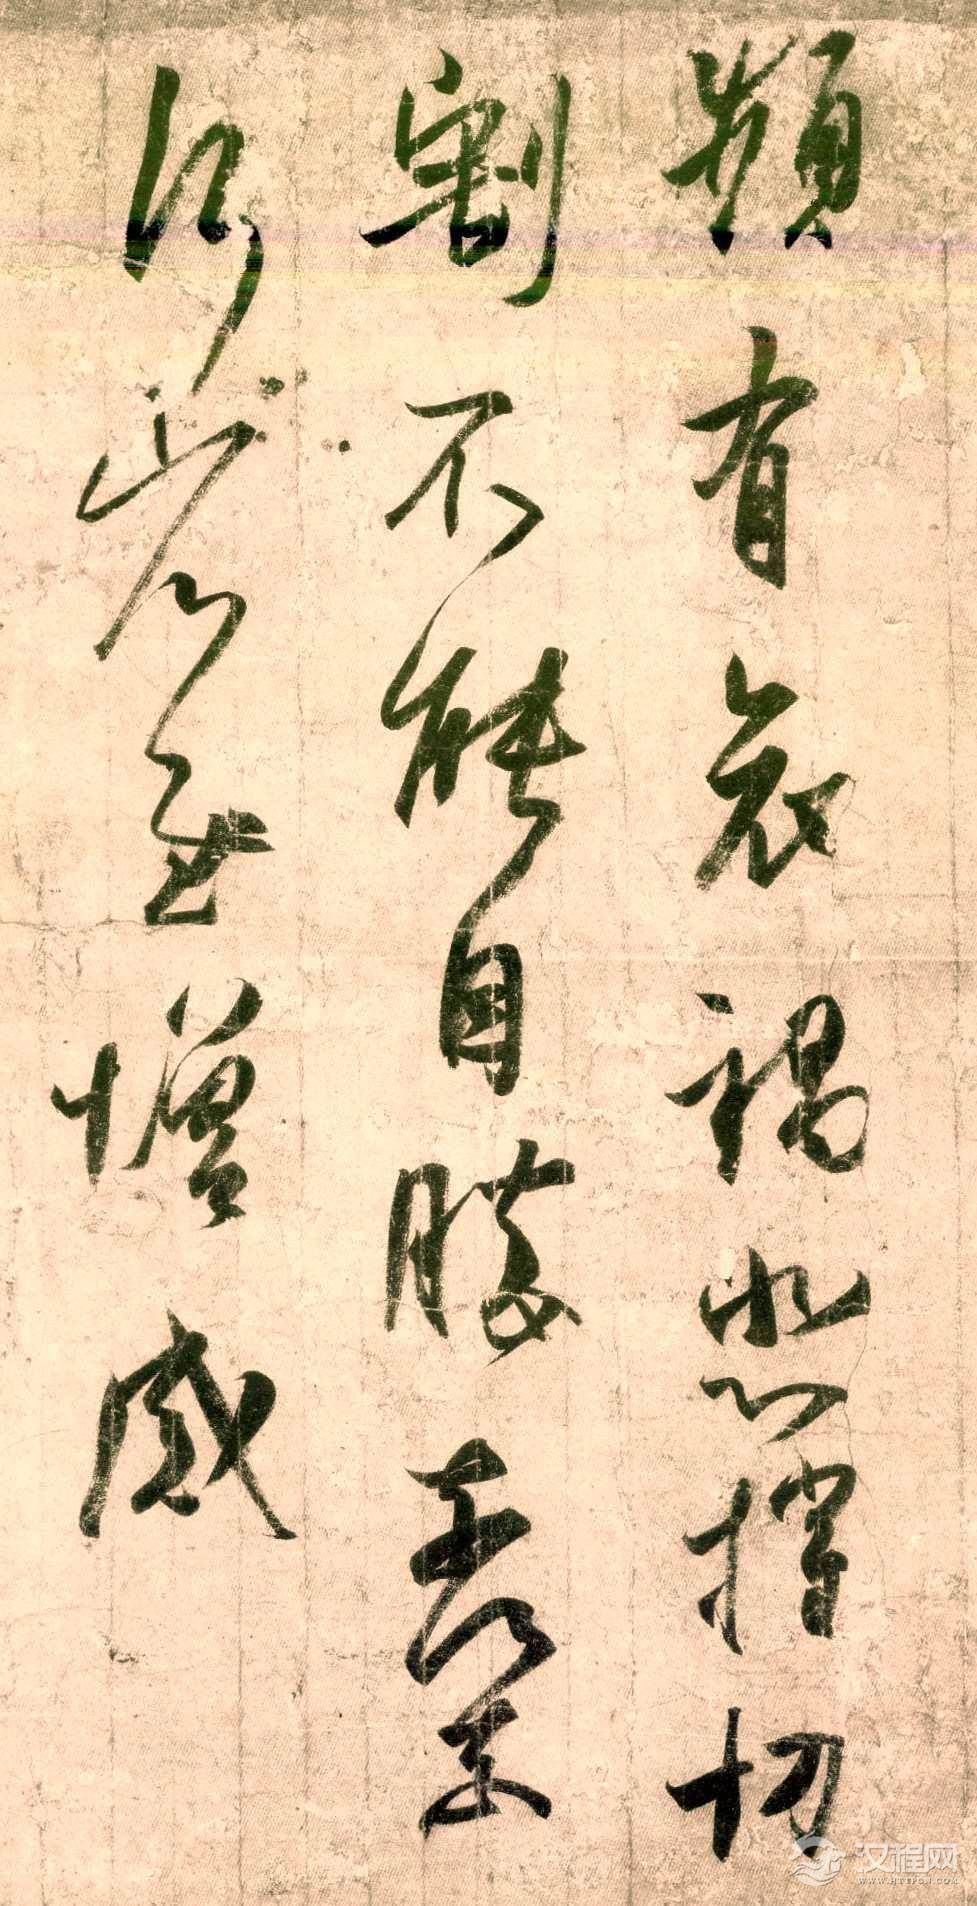 頻有哀禍悲摧切
割不能自勝奈何
奈何省慰增感
汉程网
WWW.HTTPCN.COM